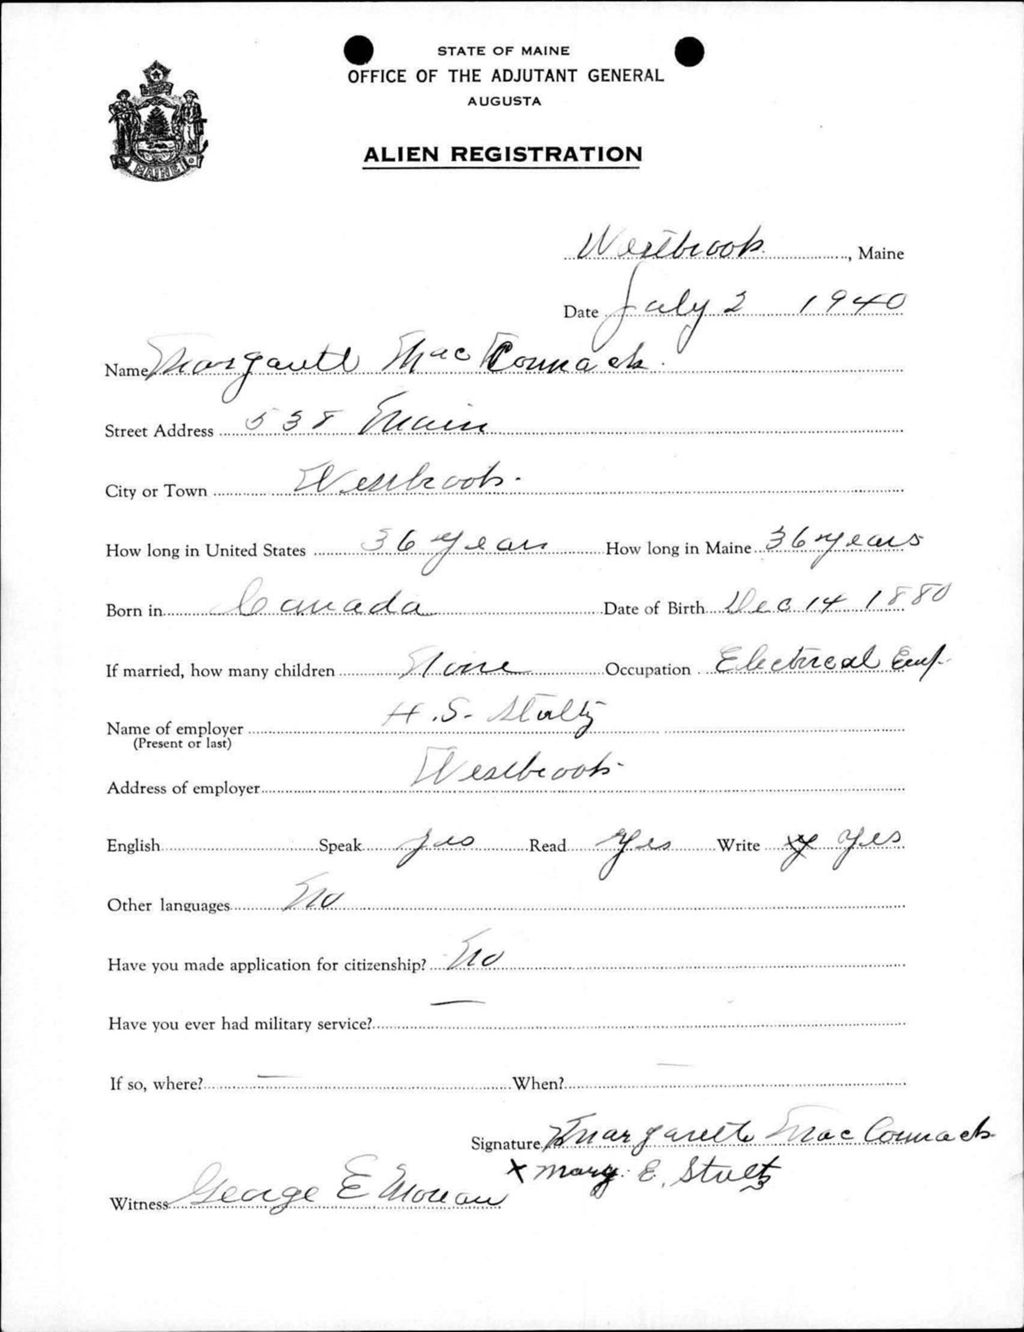 STATE OF MAINE
OFFICE OF THE ADJUTANT GENERAL
AUGUSTA
MAINE
ALIEN REGISTRATION
Westbrook, Maine
Date July 2 1940
Name Margarett MacCormack
Street Address 538 Main
City or Town Westbrook
How long in United States 36 years How long in Maine 36 years
Born in Canada Date of Birth Dec 14 1880
If married, how many children None Occupation Electrical
Name of employer H.S. Stultz
(Present or last)
Address of employer Westbrook
English Speak yes Read Yes Write y Yes
Other languages No
Have you made application for citizenship? No
Have you ever had military service? —
If so, where? — When? —
Signature Margarett MacCormack
x Mary. E. Stultz
Witness George E